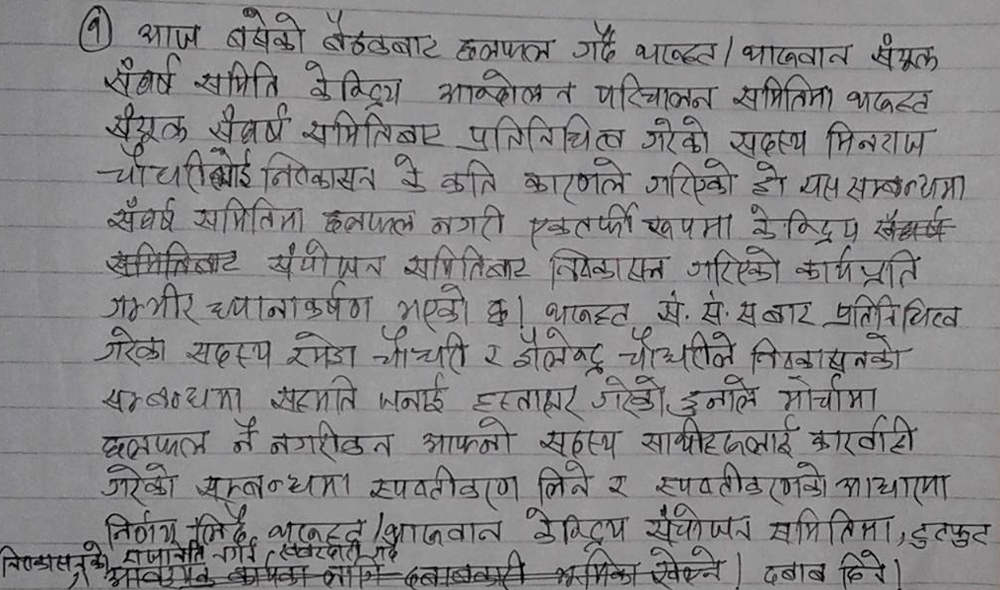 १ आज बषेको बैठकबाट छलफल गर्दै थरुहट/थारुवान संयुक्त
संघर्ष समिति केन्द्रिय आन्दोलन परिचालन समितिमा थरुहट
संयुक्त संघर्ष समितिबाट प्रतिनिधित्व गरेको सदस्य मिनराज
चौधरीलाई निस्कासन के कति कारणले गरिएको हो यस सम्बन्धमा
संघर्ष समितिमा छलफल नगरी एकतर्फी रूपमा केन्द्रिय संघर्ष
समितिबाट संयोजन समितिबाट निस्कासन गरिएको कार्यप्रति
गम्भीर ध्यानाकर्षण भएको छ। थरुहट सं. सं. स बाट प्रतिनिधित्व
गरेका सदस्य रमेश चौधरी र शैलेन्द्र चौधरीले निस्कासनको
सम्बन्धमा सहमति जनाई हस्ताक्षर गरेको हुनाले मोर्चामा
छलफल नै नगरीकन आफ्नो सदस्य साथीहरुलाई कारवाही
गरेको सम्बन्धमा स्पष्टीकरण लिने र स्पष्टीकरणको आधारमा
निर्णय लिदै थरुहट/थारुवान केन्द्रिय संयोजन समितिमा, टुटफुट
निस्कासनको हुन नदिन सच्याउन
आवश्यक कार्यका लागि दबाबकारी भूमिका खेल्ने। दबाब दिने।